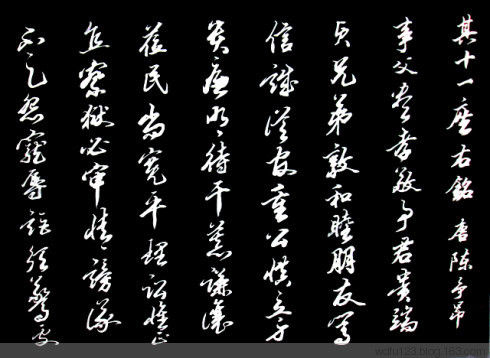 其十一座右銘 唐陳子昂
事父盡孝敬事君貴端
貞兄弟敦和睦朋友篤
信誠從官重公慎立身
貴廉明待士慕謙讓
莅民尚寬平理訟惟正
直察獄必審情謗議
不足怨寵辱詎須驚處